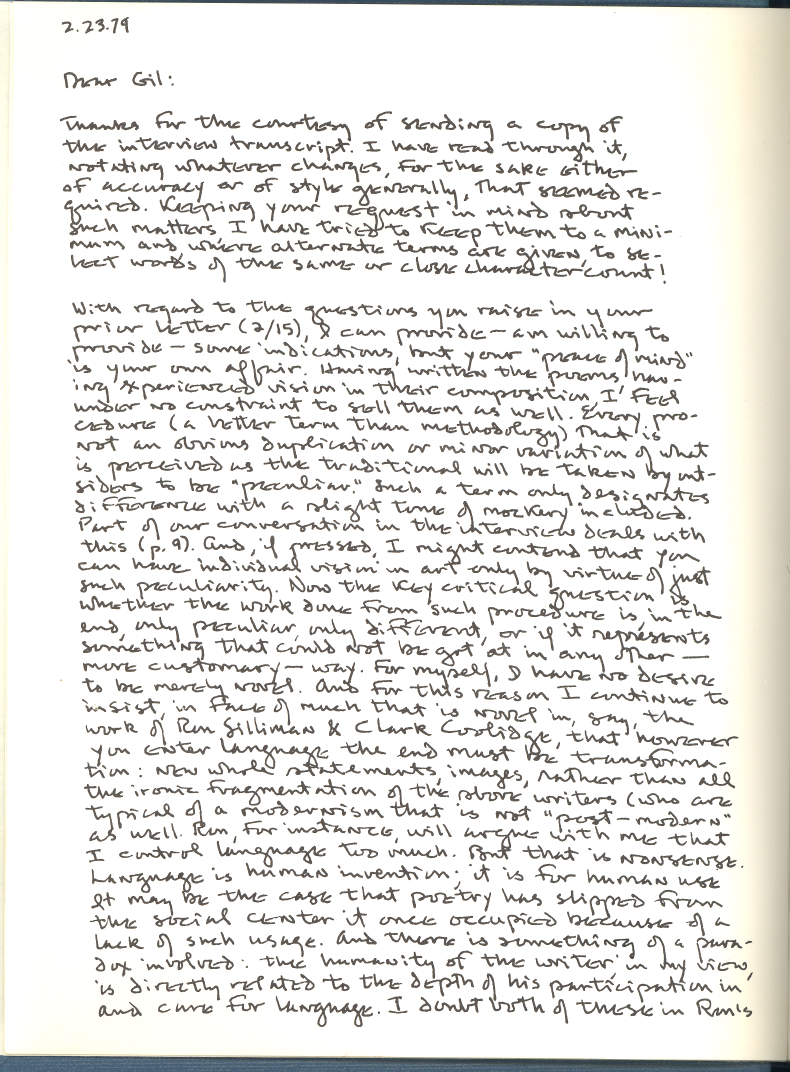 2.23.79
Dear Gil:
Thanks for the courtesy of sending a copy of
the interview transcript. I have read through it,
notating whatever changes, for the sake either
of accuracy or of style generally, that seemed re-
quired. Keeping your request in mind about
such matters I have tried to keep them to a mini-
mum and where alternate terms are given, to se-
lect words of the same or close character count!
With regard to the questions you raise in your
prior letter (2/15), I can provide — am willing to
provide — some indications, but your "peace of mind"
is your own affair. Having written the poems, hav-
ing experienced vision in their composition, I feel
under no constraint to sell them as well. Every pro-
cedure (a better term than methodology) that is
not an obvious duplication or minor variation of what
is perceived as the traditional will be taken by out-
siders to be "peculiar." Such a term only designates
difference with a slight tone of mockery included.
Part of our conversation in the interview deals with
this (p. 9). And, if pressed, I might contend that you
can have individual vision in art only by virtue of just
such peculiarity. Now the key critical question is
whether the work done from such procedure is, in the
end, only peculiar, only different, or if it represents
something that could not be got at in any other —
more customary — way. For myself, I have no desire
to be merely novel. And for this reason I continue to
insist, in face of much that is novel in, say, the
work of Ron Silliman & Clark Coolidge, that however
you enter language the end must be transforma-
tion: new whole statements, images, rather than all
the ironic fragmentation of the above writers (who are
typical of a modernism that is not "post-modern"
as well. Ron, for instance, will argue with me that
I control language too much. But that is nonsense.
Language is human invention; it is for human use
It may be the case that poetry has slipped from
the social center it once occupied because of a
lack of such usage. And there is something of a para-
dox involved: the humanity of the writer, in my view,
is directly related to the depth of his participation in
and care for language. I doubt both of these in Ron's